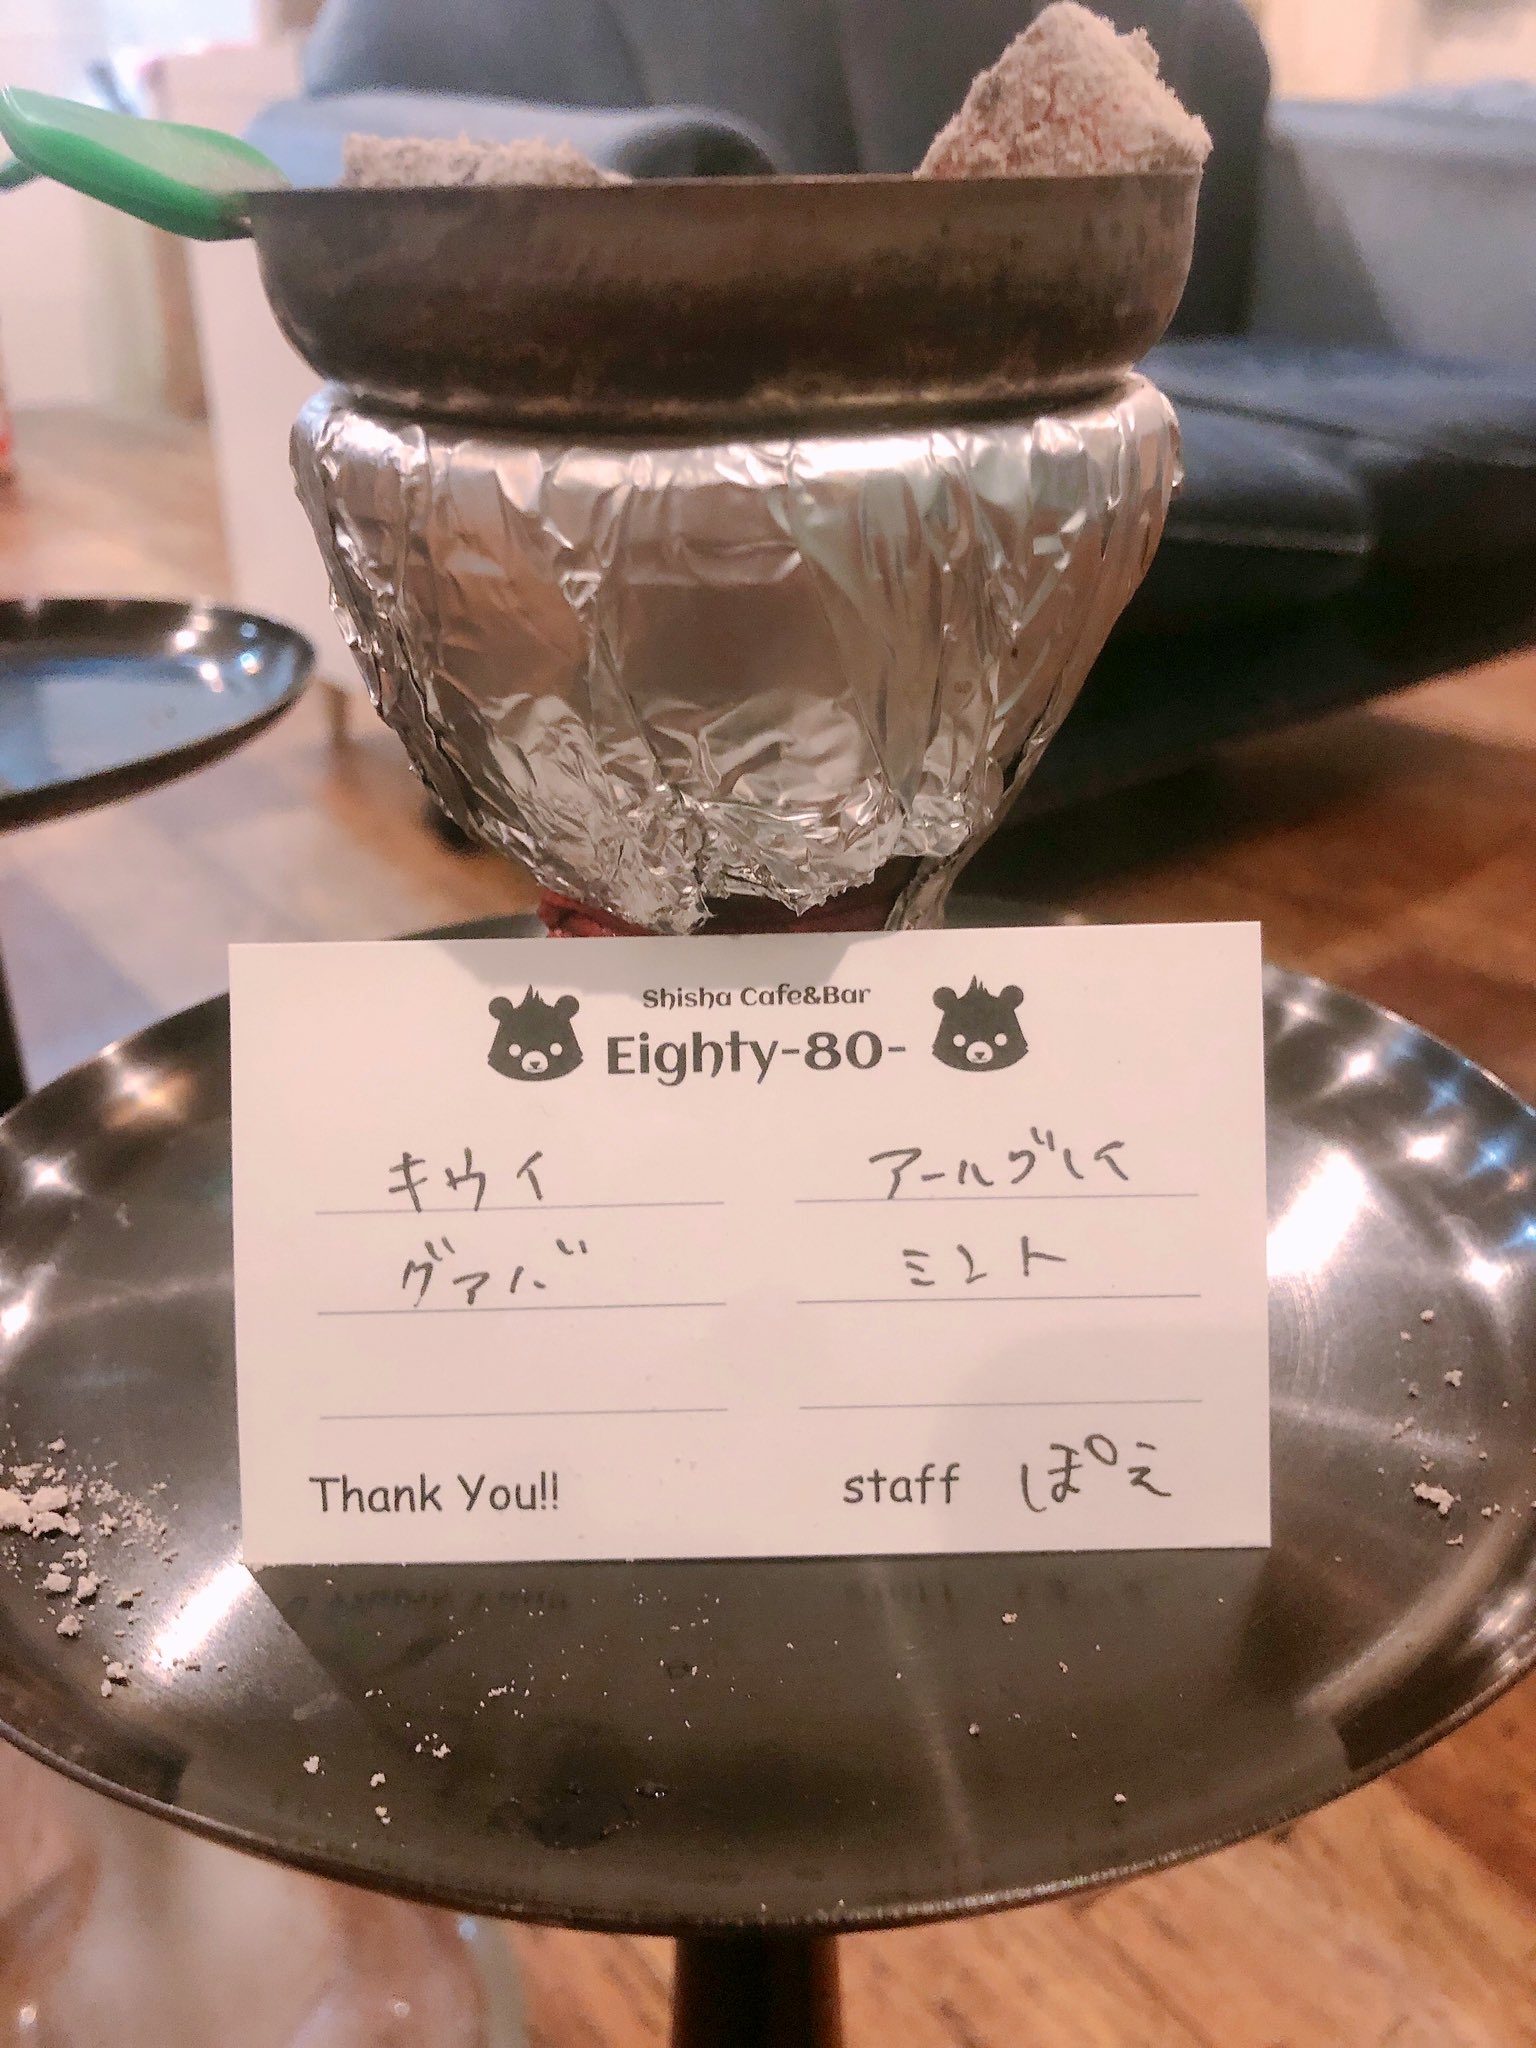 Shisha Cafe&Bar
Eighty-80-
キウイ アールグレイ
グァバ ミント
Thank You!! staff ぽえ